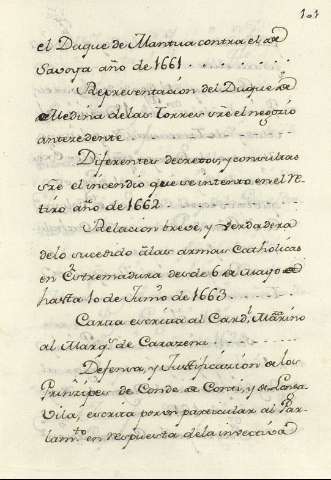 101
el Duque de Mantua contra el de
Savoya año de 1661
Representación del Duque de
Medina de las Torres sre el negocio
antecedente
Diferentes decretos, y consultas
sre el incendio que se intento en el Re
tiro año de 1662
Relacion breve, y verdadera
de lo sucedido a las armas Catholicas
en Estremadura desde 6 de Mayo
hasta 10 de Junio de 1663
Carta escrita al Cardl.
al Marqs. de Carazena
Defensa, y Justificacion de los
Principes de Conde de Conti, y de Longa
Vila, escrita por un particular al Par
lamto. en respuesta de la invectiva